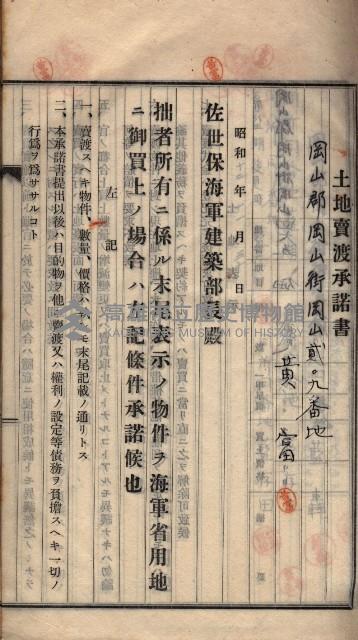 土地賣渡承諾書
岡山郡岡山街岡山貳九番地
黄 當
昭和 年 月 日
佐世保海軍建築部長殿
拙者所有ニ係ル末尾表示ノ物件ヲ海軍省用地
ニ御買上ノ場合ハ左記條件承諾候也
左 記
一、賣渡スヘキ物件、數量、價格ハ末尾記載ノ通リトス
二、本承諾書提出以後ハ目的物ヲ他ニ賣渡又ハ權利ノ設定等債務ヲ負擔スヘキ一切ノ
行爲ヲ爲ササルコト
高雄市立歷史博物館
KAOHSIUNG MUSEUM OF HISTORY